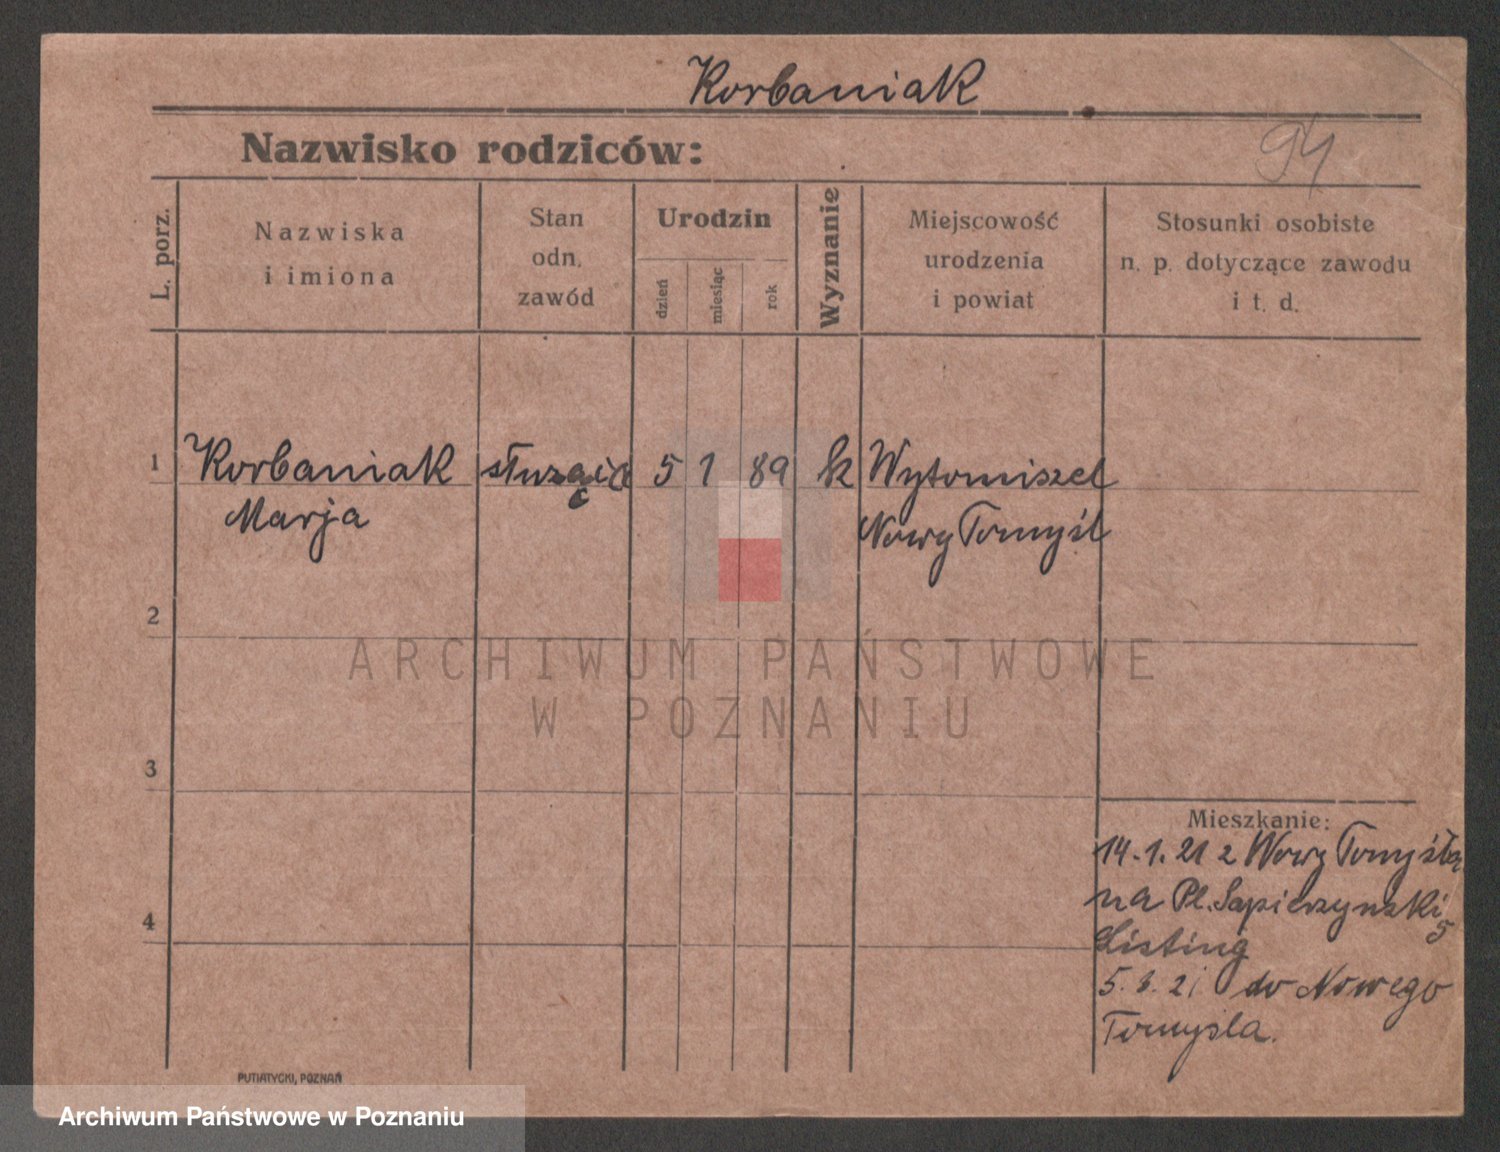 Korbaniak
Nazwisko rodziców:
94
L. porz.
Nazwiska
i imiona
Stan
odn.
zawód
Urodzin
dzień
miesiąc
rok
Wyznanie
Miejscowość
urodzenia
i powiat
Stosunki osobiste
n. p. dotyczące zawodu
i t. d.
1 Korbaniak służąca 5 1 89 k Wytomiszel
Marja Nowy Tomyśl
2
ARCHIWUM PAŃSTWOWE
W POZNANIU
3
Mieszkanie:
14.1.21 z Nowy Tomyśla
na Pl. Sapierzynski
5
Listing
4
5. 21 do Nowego
Tomyśla.
PUTIATYCKI, POZNAŃ
Archiwum Państwowe w Poznaniu